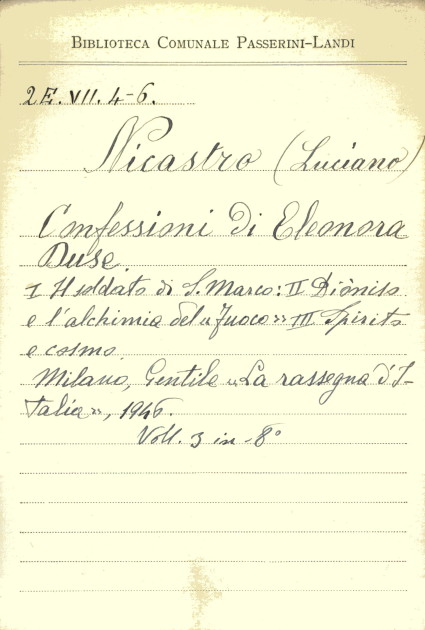 BIBLIOTECA COMUNALE PASSERINI-LANDI
2E. VII. 4-6.
Nicastro (Luciano)
Confessioni di Eleonora
Duse.
I Il soldato di S. Marco: II Diòniso
e l'alchimia del "Fuoco" III Spirito
e cosmo.
Milano, Gentile "La rassegna d'I-
talia", 1946.
Voll. 3 in -8°